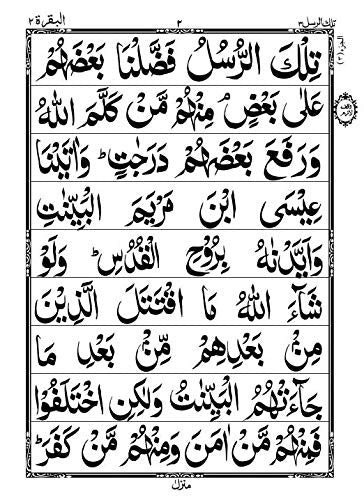 تلك الرسل ٣ ٢ البقرة ٢
تِلْكَ الرُّسُلُ فَضَّلْنَا بَعْضَهُمْ
عَلٰى بَعْضٍ مِنْهُمْ مَّنْ كَلَّمَ اللّٰهُ
وَرَفَعَ بَعْضَهُمْ دَرَجٰتٍ ؕ وَاٰتَيْنَا
عِيْسَى ابْنَ مَرْيَمَ الْبَيِّنٰتِ
وَاَيَّدْنٰهُ بِرُوْحِ الْقُدُسِ ؕ وَلَوْ
شَآءَ اللّٰهُ مَا اقْتَتَلَ الَّذِيْنَ
مِنْۢ بَعْدِهِمْ مِّنْۢ بَعْدِ مَا
جَآءَتْهُمُ الْبَيِّنٰتُ وَلٰكِنِ اخْتَلَفُوْا
فَمِنْهُمْ مَّنْ اٰمَنَ وَمِنْهُمْ مَّنْ كَفَرَ ؕ
منزل